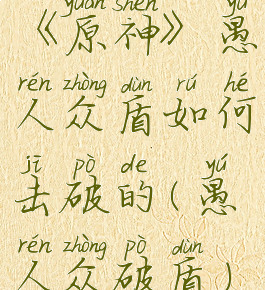 yuán shén yú
《原神》 愚
rén zhòng dùn rú hé
人众盾如何
jī pò de yú
击破的(愚
rén zhòng pò dùn
人众破盾)